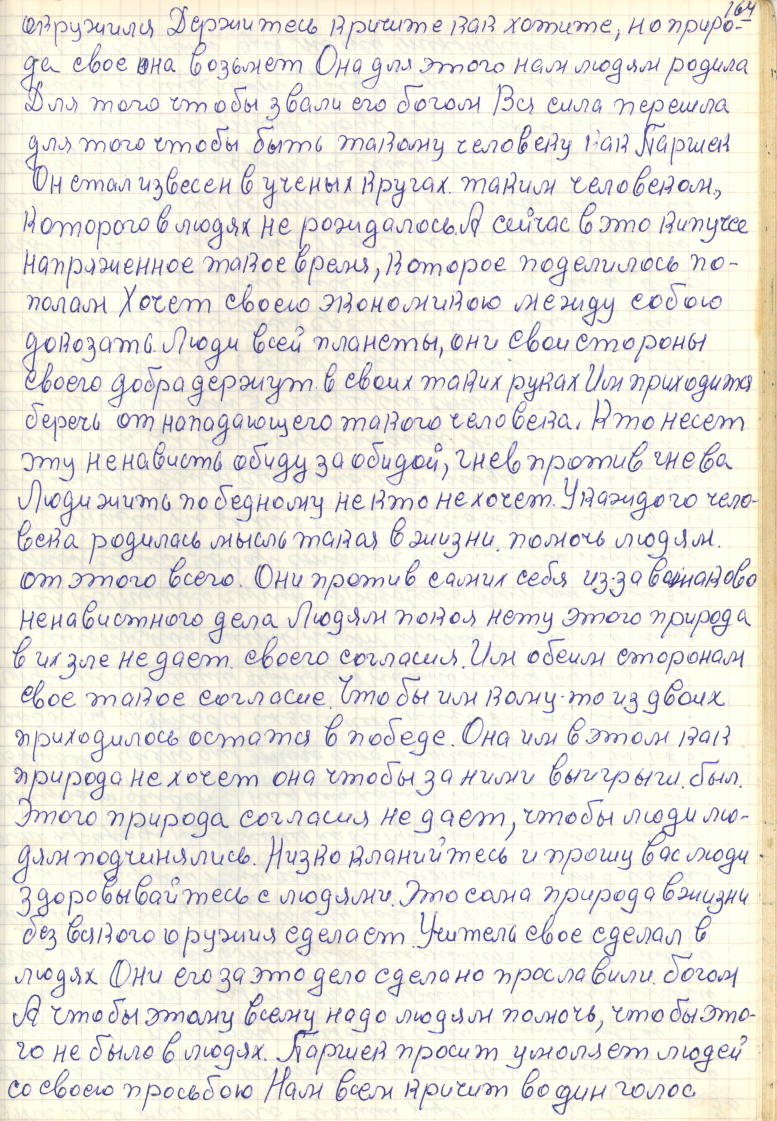 164
окружиля Держитесь кричите как хотите, но приро-
да свое она возьмет Она для этого нам людям родила
Для того чтобы звали его богом Вся сила перешла
для того чтобы быть такому человеку как Паршек
Он стал извесен в ученых кругах. таким человеком,
которого в людях не рождалось. А сейчас в это кипучее
напряженное такое время, которое поделилось по-
полам Хочет своею экономикою между собою
докозать. Люди всей планеты, они свои стороны
своего добра держут в своих таких руках Им приходится
беречь от нападающего такого человека. Кто несет
эту ненависть обиду за обидой, гнев против гнева
Люди жить по бедному не кто не хочет. У каждого чело-
века родилась мысль такая в жизни. помочь людям.
от этого всего. Они против самих себя из-за
ненавистного дела Людям покоя нету этого природа
в их зле не дает своего согласия. Им обеим сторонам
свое такое согласие. Чтобы им кому-то из двоих
приходилось остатся в победе. Она им в этом как
природа не хочет она чтобы за ними выигрыш. был.
Этого природа согласия не дает, чтобы люди лю-
дям подчинялись. Низко кланийтесь и прошу вас люди
здоровывайтесь с людями. Это сама природа в жизни
без всякого оружия сделает. Учитель свое сделал в
людях Они его за это дело сделано прославили. богом
А чтобы этому всему надо людям помочь, чтобы это-
го не было в людях. Паршек просит умоляет людей
со своею просьбою Нам всем кричит в один голос